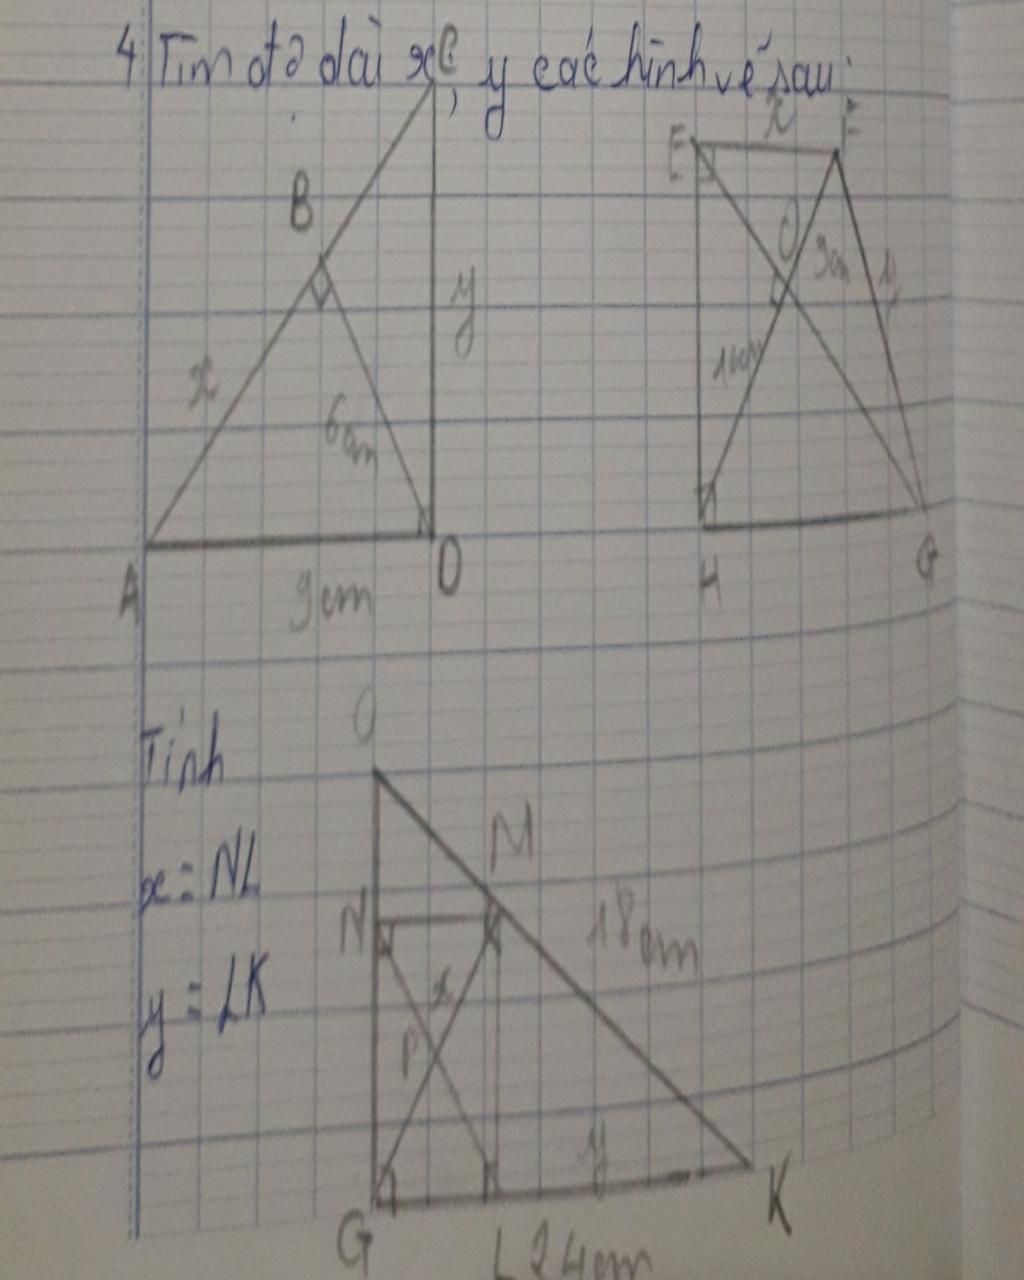 4 Tìm độ dài x, y các hình vẽ sau:
C
B
x
y
6cm
A
D
9cm
E
x
F
O
9cm
y
16cm
H
G
Tính
x = NL
y = LK
O
M
N
18cm
x
P
y
G
L
24cm
K